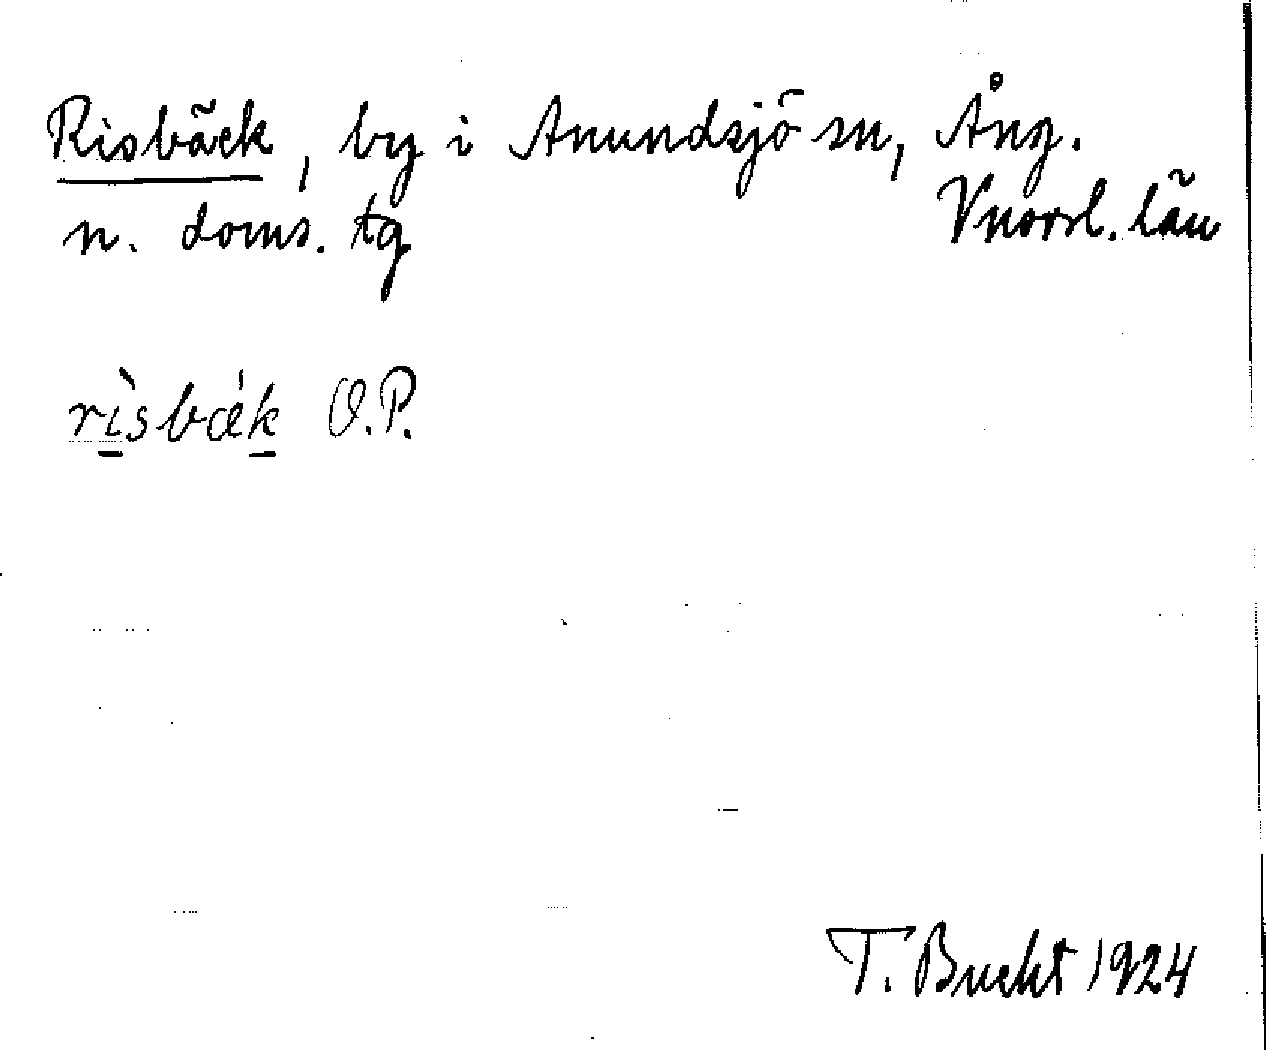 Risbäck, by i Anundsjö sn, Ång.
n. doms. tg Vnorrl. län
rìsbǽk O.P.
T. Bucht 1924